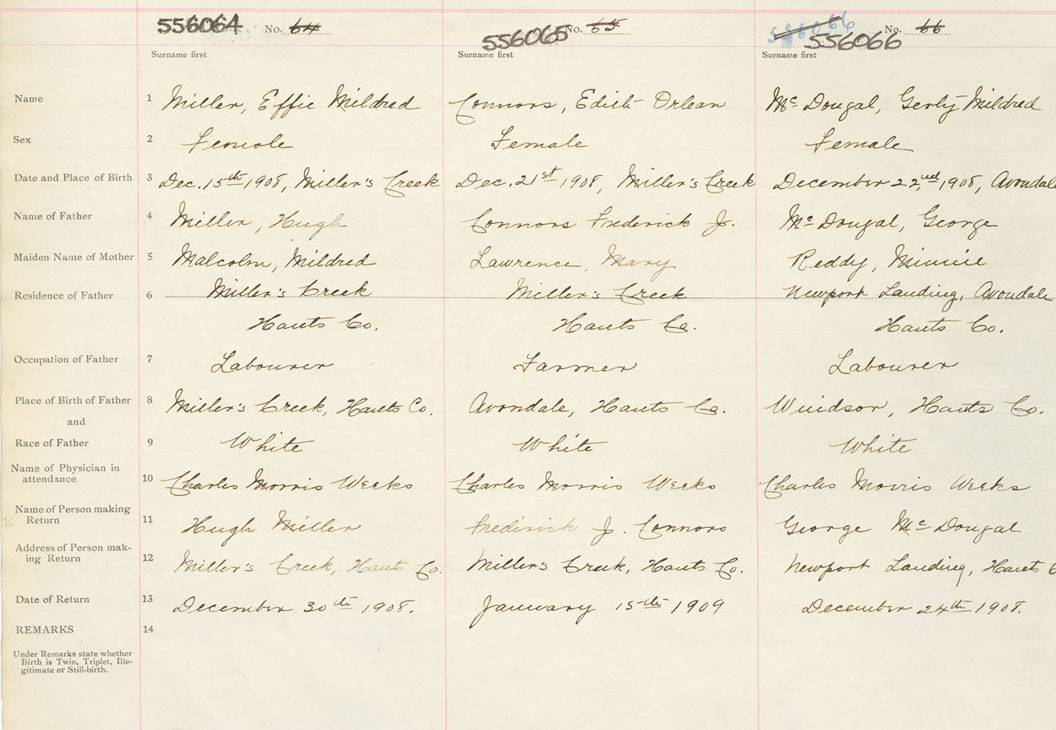 556064 No. 64 556065 No. 65 556066 556066 No. 66
Surname first Surname first Surname first
Name 1 Miller, Effie Mildred Connors, Edith Orlean McDougal, Gerty Mildred
Sex 2 Female Female Female
Date and Place of Birth 3 Dec. 15th 1908, Miller's Creek Dec. 21st 1908, Miller's Creek December 22nd 1908, Avondale
Name of Father 4 Miller, Hugh Connors Frederick J. McDougal, George
Maiden Name of Mother 5 Malcolm, Mildred Lawrence, Mary Reddy, Minnie
Residence of Father 6 Miller's Creek Miller's Creek Newport Landing, Avondale
Hants Co. Hants Co. Hants Co.
Occupation of Father 7 Labourer Farmer Labourer
Place of Birth of Father 8 Miller's Creek, Hants Co. Avondale, Hants Co. Windsor, Hants Co.
and
Race of Father 9 White White White
Name of Physician in
attendance 10 Charles Morris Weeks Charles Morris Weeks Charles Morris Weeks
Name of Person making
Return 11 Hugh Miller Frederick J. Connors George McDougal
Address of Person mak-
ing Return 12 Miller's Creek, Hants Co. Miller's Creek, Hants Co. Newport Landing, Hants C
Date of Return 13 December 30th 1908. January 15th 1909 December 24th 1908.
REMARKS 14
Under Remarks state whether
Birth is Twin, Triplet, Ille-
gitimate or Still-birth.